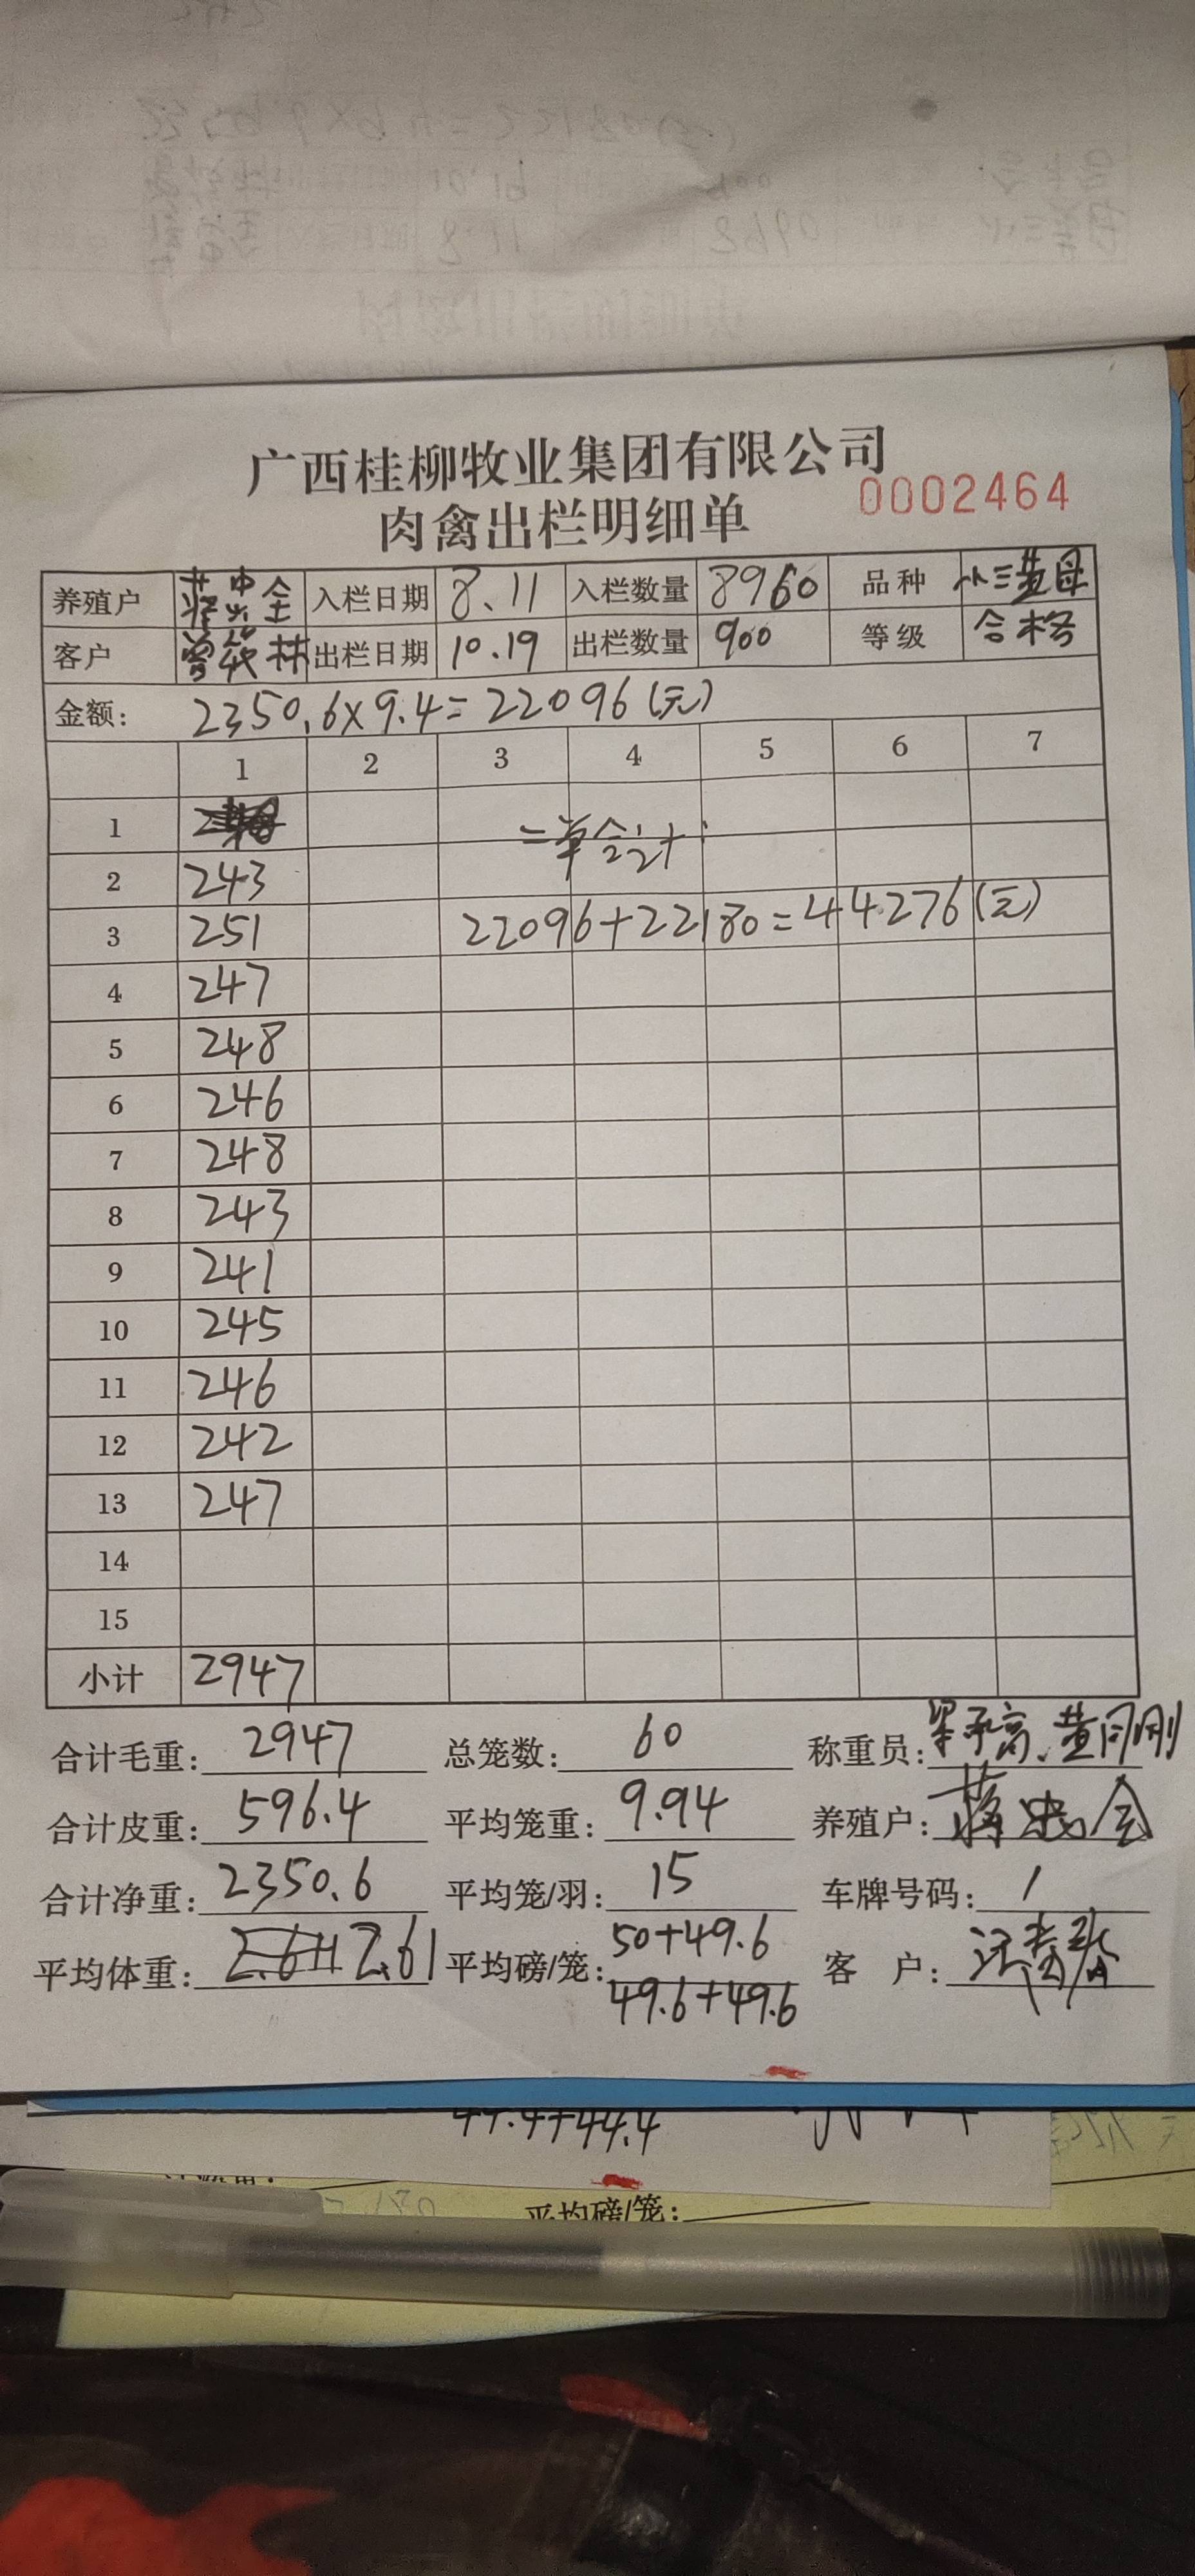 广西桂柳牧业集团有限公司
肉禽出栏明细单 0002464
养殖户 蒋忠全 入栏日期 8.11 入栏数量 8960 品种 小三黄母
客户 林 出栏日期 10.19 出栏数量 900 等级 合格
金额: 2350.6×9.4=22096(元)
1 2 3 4 5 6 7
1
二单合计:
2 243
3 251 22096+22180=44276(元)
4 247
5 248
6 246
7 248
8 243
9 241
10 245
11 246
12 242
13 247
14
15
小计 2947
合计毛重: 2947 总笼数: 60 称重员:
合计皮重: 596.4 平均笼重: 9.94 养殖户: 蒋忠全
合计净重: 2350.6 平均笼/羽: 15 车牌号码: 1
平均体重: 2.61 平均磅/笼: 50+49.6 客 户:
49.6+49.6
44.4+44.4
平均磅/笼: